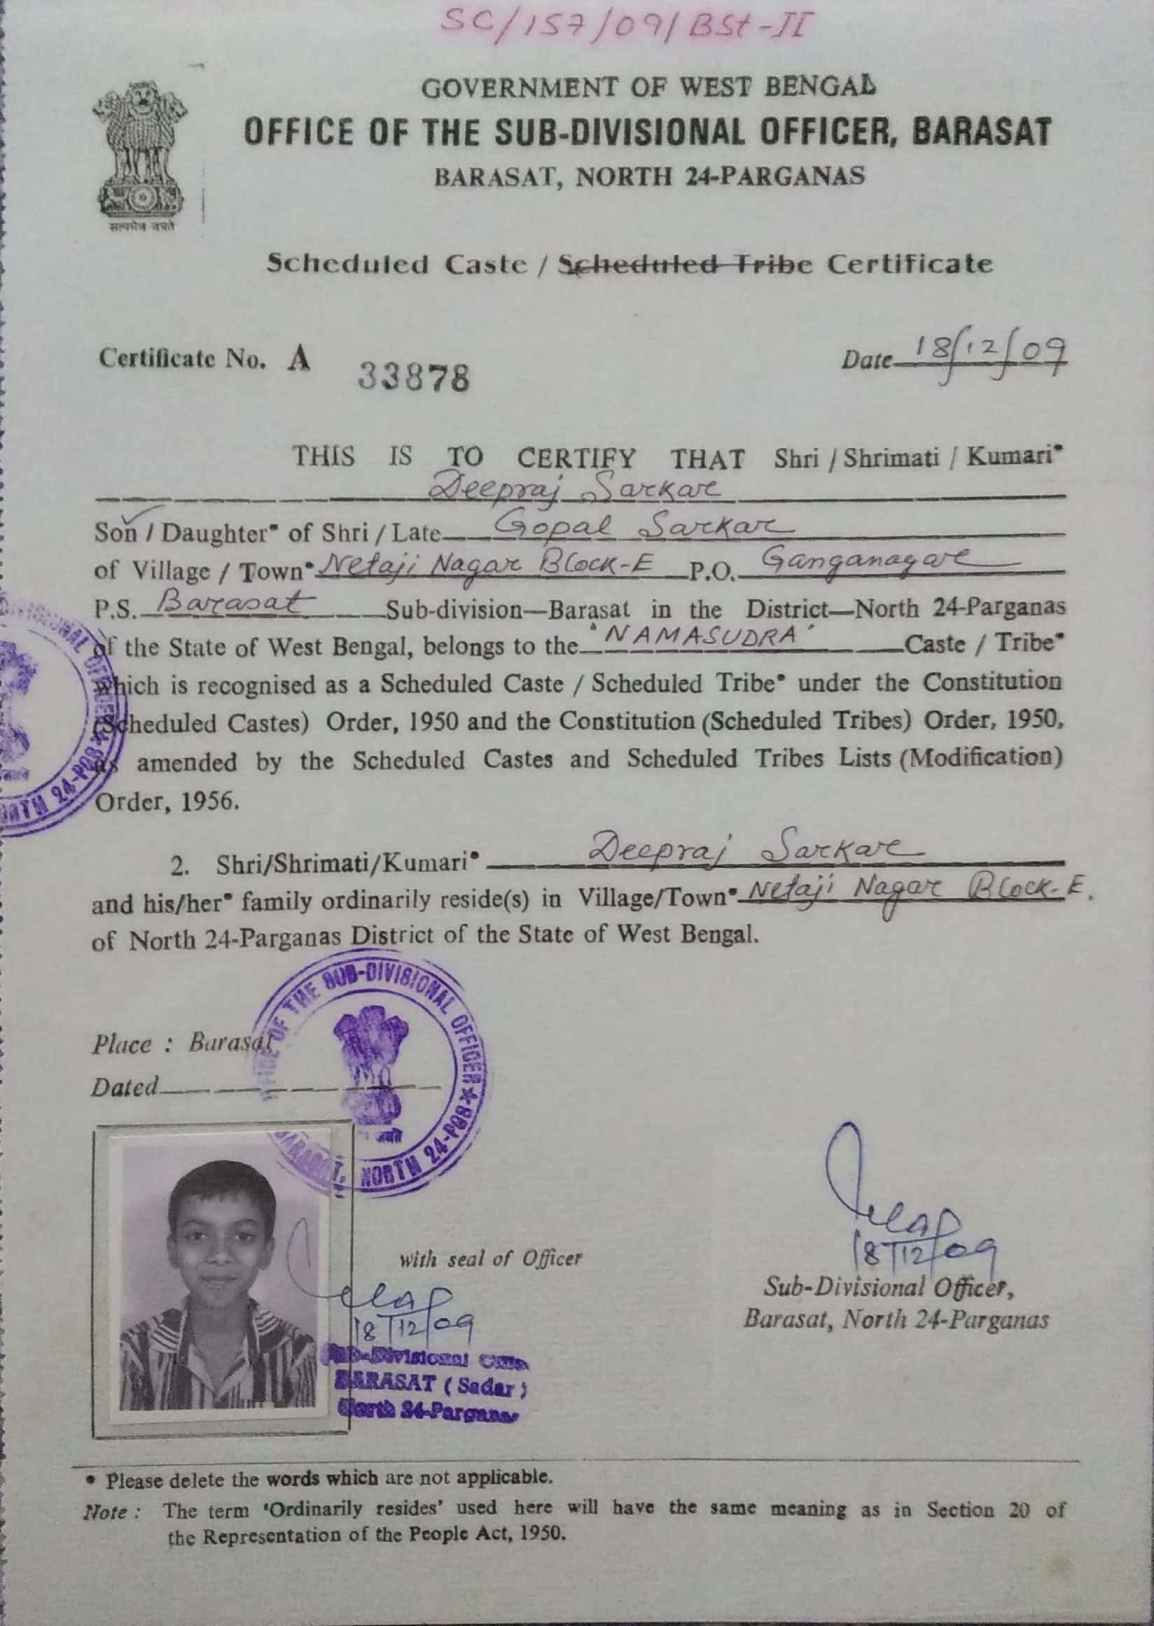 SC/157/09/BSt-II
GOVERNMENT OF WEST BENGAL
OFFICE OF THE SUB-DIVISIONAL OFFICER, BARASAT
BARASAT, NORTH 24-PARGANAS
सत्यमेव जयते
Scheduled Caste / Scheduled Tribe Certificate
Certificate No. A 33878 Date 18/12/09
THIS IS TO CERTIFY THAT Shri / Shrimati / Kumari*
Deepraj Sarkar
Son / Daughter* of Shri / Late Gopal Sarkar
of Village / Town* Netaji Nagar Block-E P.O. Ganganagar
P.S. Barasat Sub-division—Barasat in the District—North 24-Parganas
of the State of West Bengal, belongs to the 'NAMASUDRA' Caste / Tribe*
which is recognised as a Scheduled Caste / Scheduled Tribe* under the Constitution
(Scheduled Castes) Order, 1950 and the Constitution (Scheduled Tribes) Order, 1950,
as amended by the Scheduled Castes and Scheduled Tribes Lists (Modification)
Order, 1956.
2. Shri/Shrimati/Kumari* Deepraj Sarkar
and his/her* family ordinarily reside(s) in Village/Town* Netaji Nagar Block-E.
of North 24-Parganas District of the State of West Bengal.
OFFICE OF THE SUB-DIVISIONAL OFFICER★
BARASAT, NORTH 24-PGS★
Place : Barasat
Dated
with seal of Officer
18/12/09
Sub-Divisional Officer
BARASAT ( Sadar )
North 24-Parganas
18/12/09
Sub-Divisional Officer,
Barasat, North 24-Parganas
* Please delete the words which are not applicable.
Note : The term 'Ordinarily resides' used here will have the same meaning as in Section 20 of
the Representation of the People Act, 1950.